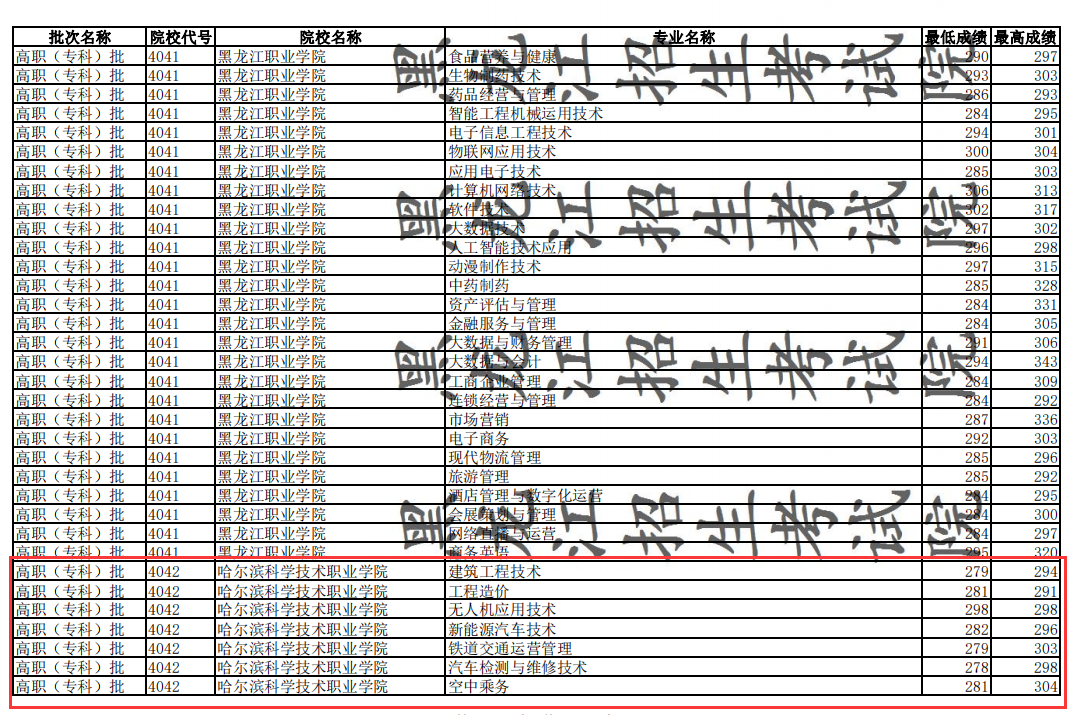 批次名称 院校代号 院校名称 专业名称 最低成绩 最高成绩
高职（专科）批 4041 黑龙江职业学院 食品营养与健康 290 297
高职（专科）批 4041 黑龙江职业学院 生物制药技术 293 303
高职（专科）批 4041 黑龙江职业学院 药品经营与管理 286 293
高职（专科）批 4041 黑龙江职业学院 智能工程机械运用技术 284 295
高职（专科）批 4041 黑龙江职业学院 电子信息工程技术 294 301
高职（专科）批 4041 黑龙江职业学院 物联网应用技术 300 304
高职（专科）批 4041 黑龙江职业学院 应用电子技术 285 303
高职（专科）批 4041 黑龙江职业学院 计算机网络技术 306 313
高职（专科）批 4041 黑龙江职业学院 软件技术 302 317
高职（专科）批 4041 黑龙江职业学院 大数据技术 297 302
高职（专科）批 4041 黑龙江职业学院 人工智能技术应用 296 298
高职（专科）批 4041 黑龙江职业学院 动漫制作技术 297 315
高职（专科）批 4041 黑龙江职业学院 中药制药 285 328
高职（专科）批 4041 黑龙江职业学院 资产评估与管理 284 331
高职（专科）批 4041 黑龙江职业学院 金融服务与管理 284 305
高职（专科）批 4041 黑龙江职业学院 大数据与财务管理 291 306
高职（专科）批 4041 黑龙江职业学院 大数据与会计 294 343
高职（专科）批 4041 黑龙江职业学院 工商企业管理 284 309
高职（专科）批 4041 黑龙江职业学院 连锁经营与管理 284 292
高职（专科）批 4041 黑龙江职业学院 市场营销 287 336
高职（专科）批 4041 黑龙江职业学院 电子商务 292 303
高职（专科）批 4041 黑龙江职业学院 现代物流管理 285 296
高职（专科）批 4041 黑龙江职业学院 旅游管理 285 292
高职（专科）批 4041 黑龙江职业学院 酒店管理与数字化运营 284 295
高职（专科）批 4041 黑龙江职业学院 会展策划与管理 284 300
高职（专科）批 4041 黑龙江职业学院 网络直播与运营 284 297
高职（专科）批 4041 黑龙江职业学院 商务英语 295 320
高职（专科）批 4042 哈尔滨科学技术职业学院 建筑工程技术 279 294
高职（专科）批 4042 哈尔滨科学技术职业学院 工程造价 281 291
高职（专科）批 4042 哈尔滨科学技术职业学院 无人机应用技术 298 298
高职（专科）批 4042 哈尔滨科学技术职业学院 新能源汽车技术 282 296
高职（专科）批 4042 哈尔滨科学技术职业学院 铁道交通运营管理 279 303
高职（专科）批 4042 哈尔滨科学技术职业学院 汽车检测与维修技术 278 298
高职（专科）批 4042 哈尔滨科学技术职业学院 空中乘务 281 304
黑龙江招生考试院
黑龙江招生考试院
黑龙江招生考试院
黑龙江招生考试院